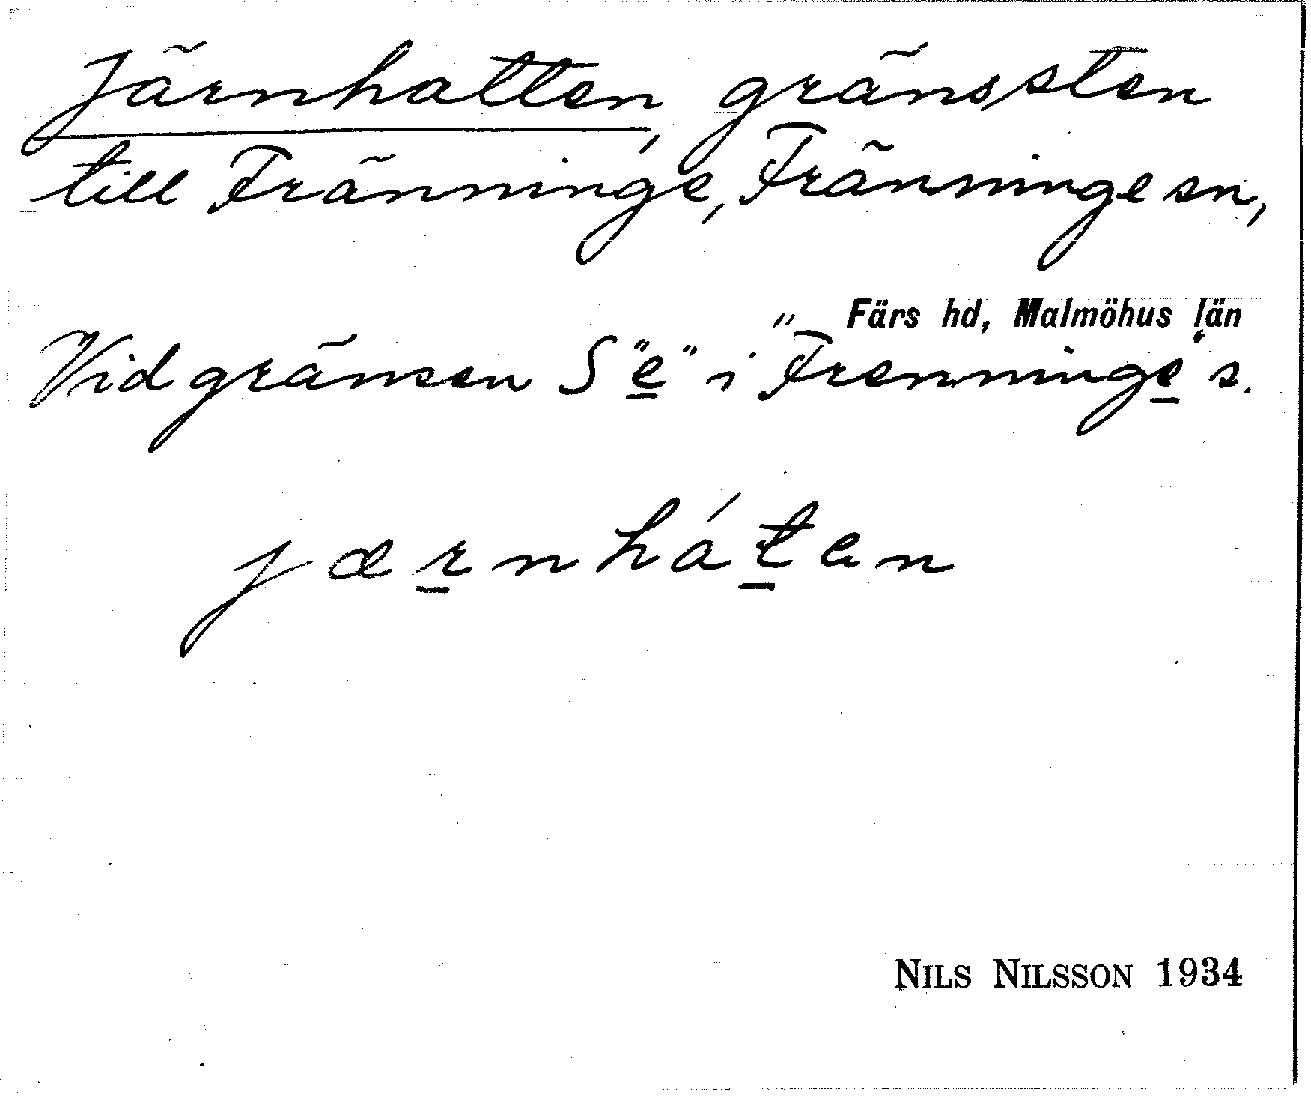 Järnhatten, gränssten
till Fränninge, Fränninge sn,
Färs hd, Malmöhus län
Vid gränsen S "e" i "Frenninge" s.
jærnháten
NILS NILSSON 1934